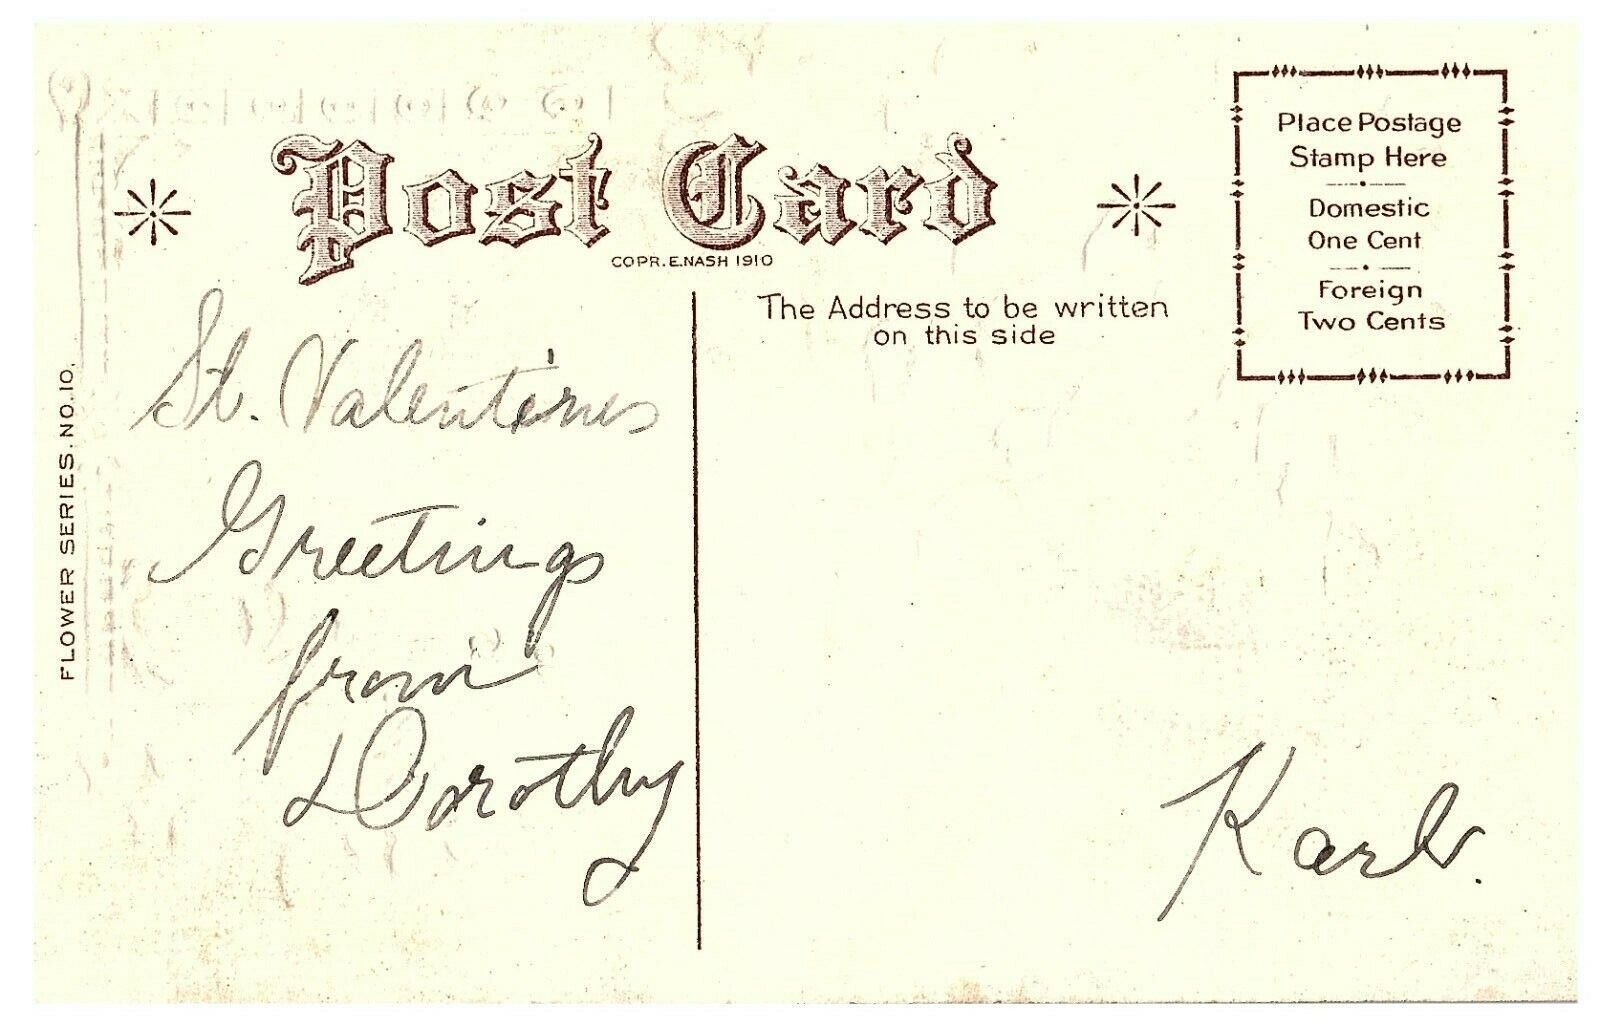 Post Card
COPR. E. NASH 1910
Place Postage
Stamp Here
Domestic
One Cent
Foreign
Two Cents
The Address to be written
on this side
FLOWER SERIES. NO. 10.
St. Valentines
Greetings
from
Dorothy
Karl.